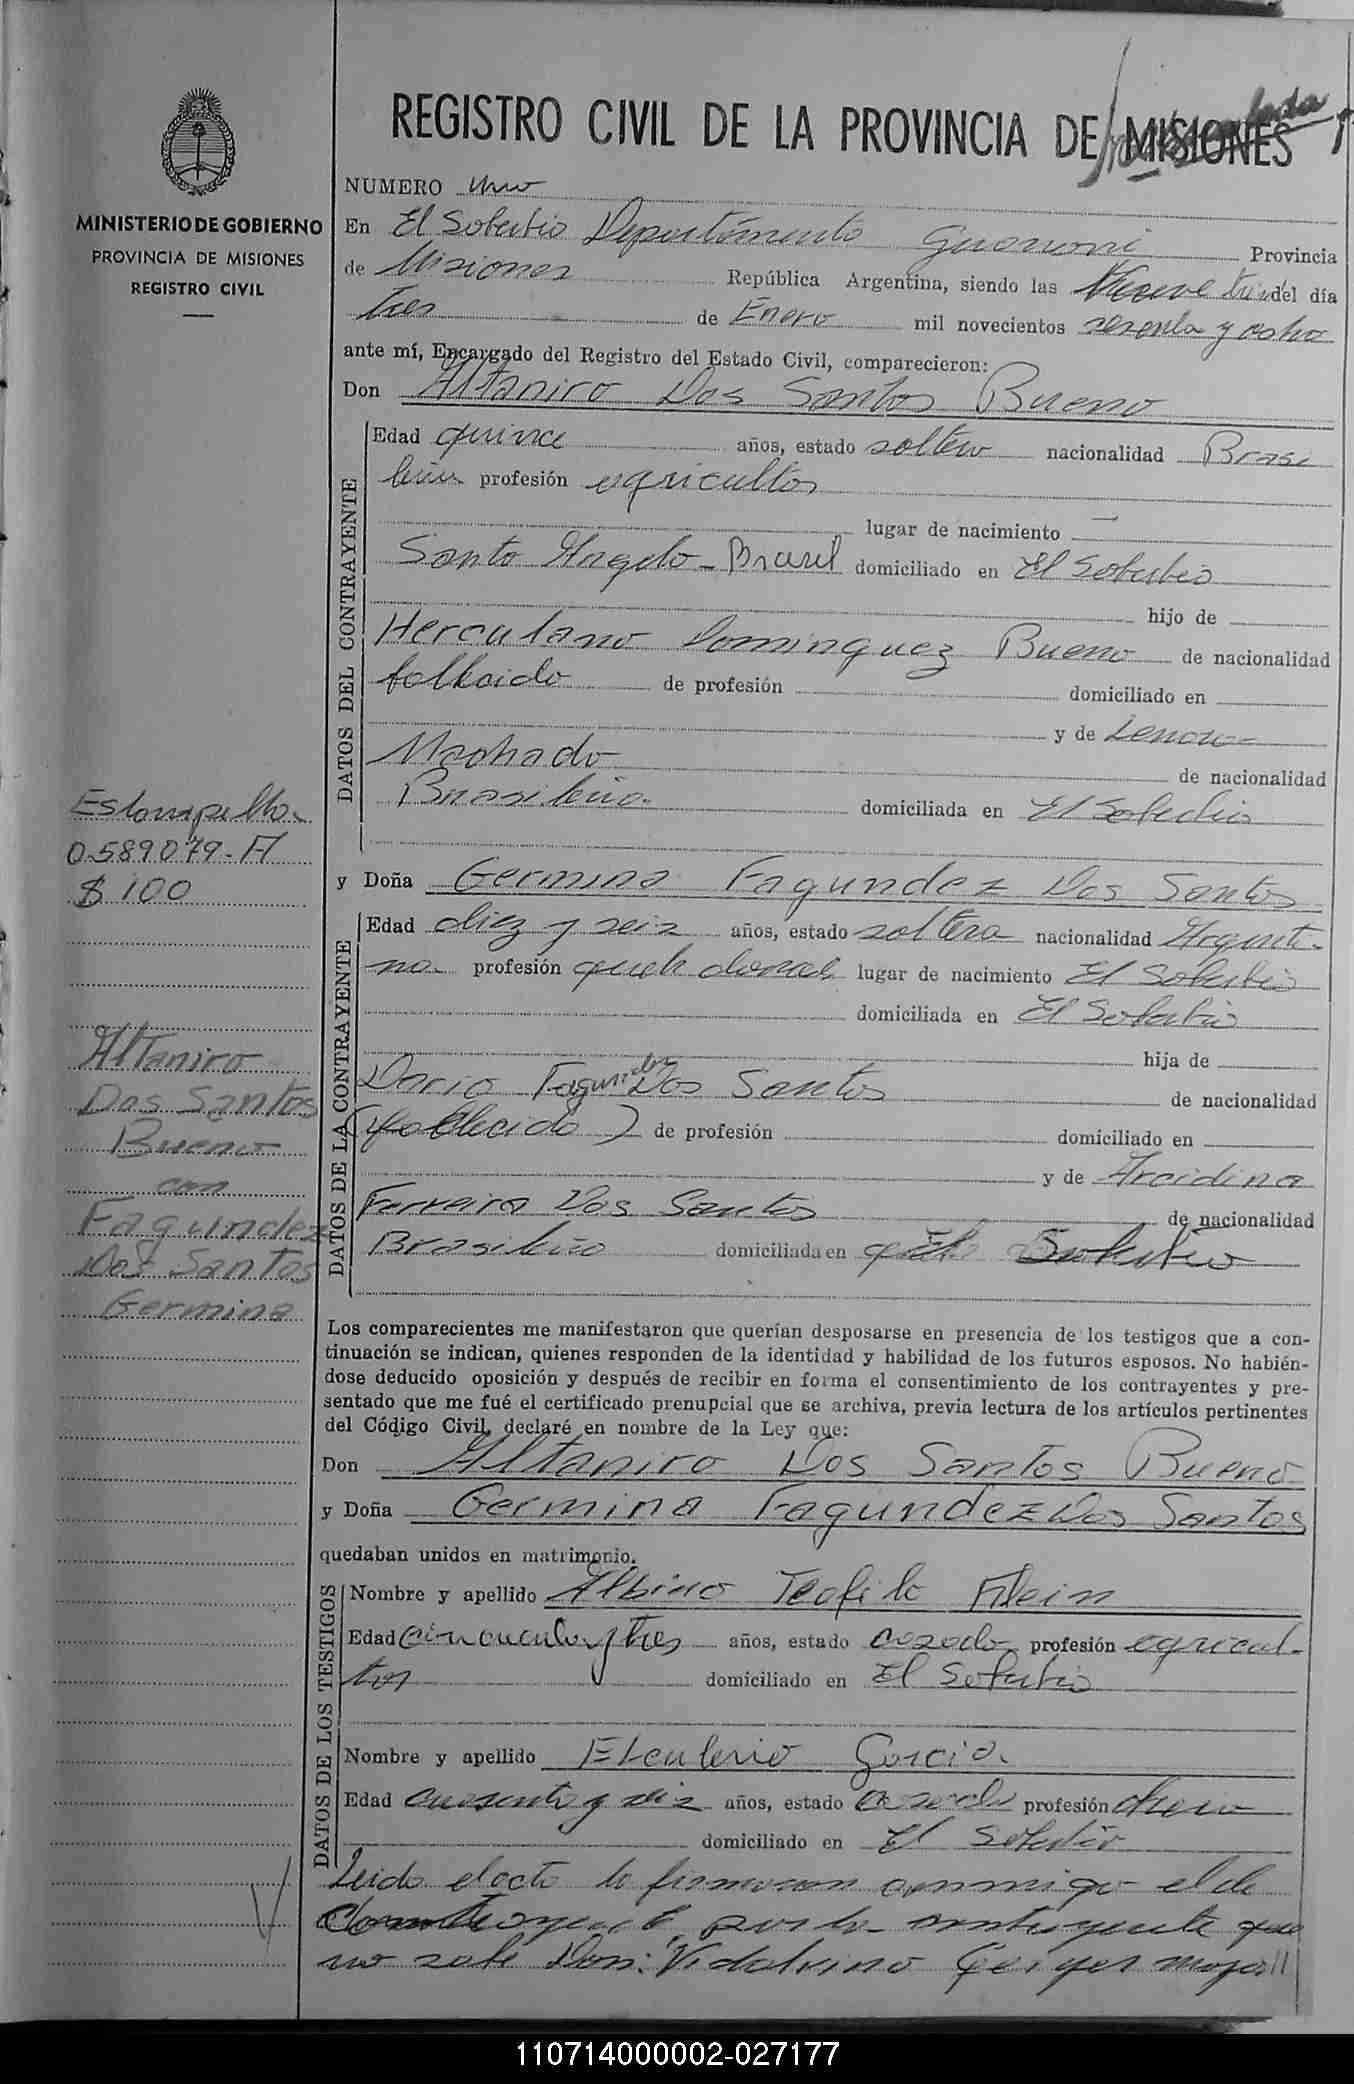 REGISTRO CIVIL DE LA PROVINCIA DE MISIONES
MINISTERIO DE GOBIERNO
PROVINCIA DE MISIONES
REGISTRO CIVIL
NUMERO uno
En El Soberbio Departamento Guaraní Provincia
de Misiones República Argentina, siendo las del día
tres de Enero mil novecientos sesenta y ocho
ante mí, Encargado del Registro del Estado Civil, comparecieron:
Don Altaniro Dos Santos Bueno
DATOS DEL CONTRAYENTE
Edad quince años, estado soltero nacionalidad Brasi
leña profesión agricultor
lugar de nacimiento —
Santo Angelo - Brasil domiciliado en El Soberbio
hijo de
Herculano Dominguez Bueno de nacionalidad
fallecido de profesión domiciliado en
y de Lenora
Machado de nacionalidad
Brasileña. domiciliada en El Soberbio
Estampilla
0.589079-A
$ 100
y Doña Germina Fagundez Dos Santos
DATOS DE LA CONTRAYENTE
Edad diez y seis años, estado soltera nacionalidad Argenti-
na profesión queh domest lugar de nacimiento El Soberbio
domiciliada en El Soberbio
hija de
Dario Fagundez Dos Santos de nacionalidad
(fallecido) de profesión domiciliado en
y de Arcidina
Ferreira Dos Santos de nacionalidad
Brasileña domiciliada en El Soberbio
Altaniro
Dos Santos
Bueno
con
Fagundez
Dos Santos
Germina
Los comparecientes me manifestaron que querían desposarse en presencia de los testigos que a con-
tinuación se indican, quienes responden de la identidad y habilidad de los futuros esposos. No habién-
dose deducido oposición y después de recibir en forma el consentimiento de los contrayentes y pre-
sentado que me fué el certificado prenupcial que se archiva, previa lectura de los artículos pertinentes
del Código Civil, declaré en nombre de la Ley que:
Don Altaniro Dos Santos Bueno
y Doña Germina Fagundez Dos Santos
quedaban unidos en matrimonio.
DATOS DE LOS TESTIGOS
Nombre y apellido Albino Teofilo Klein
Edad cincuenta y tres años, estado casado profesión agricul-
tor domiciliado en El Soberbio
Nombre y apellido Eleuterio Garcia.
Edad cuarenta y seis años, estado casado profesión
domiciliado en El Soberbio
Leida el acta la firmaron conmigo el
Contrayente, por la contrayente que
no sabe Don: Vidalvino Geiger mayor//
110714000002-027177